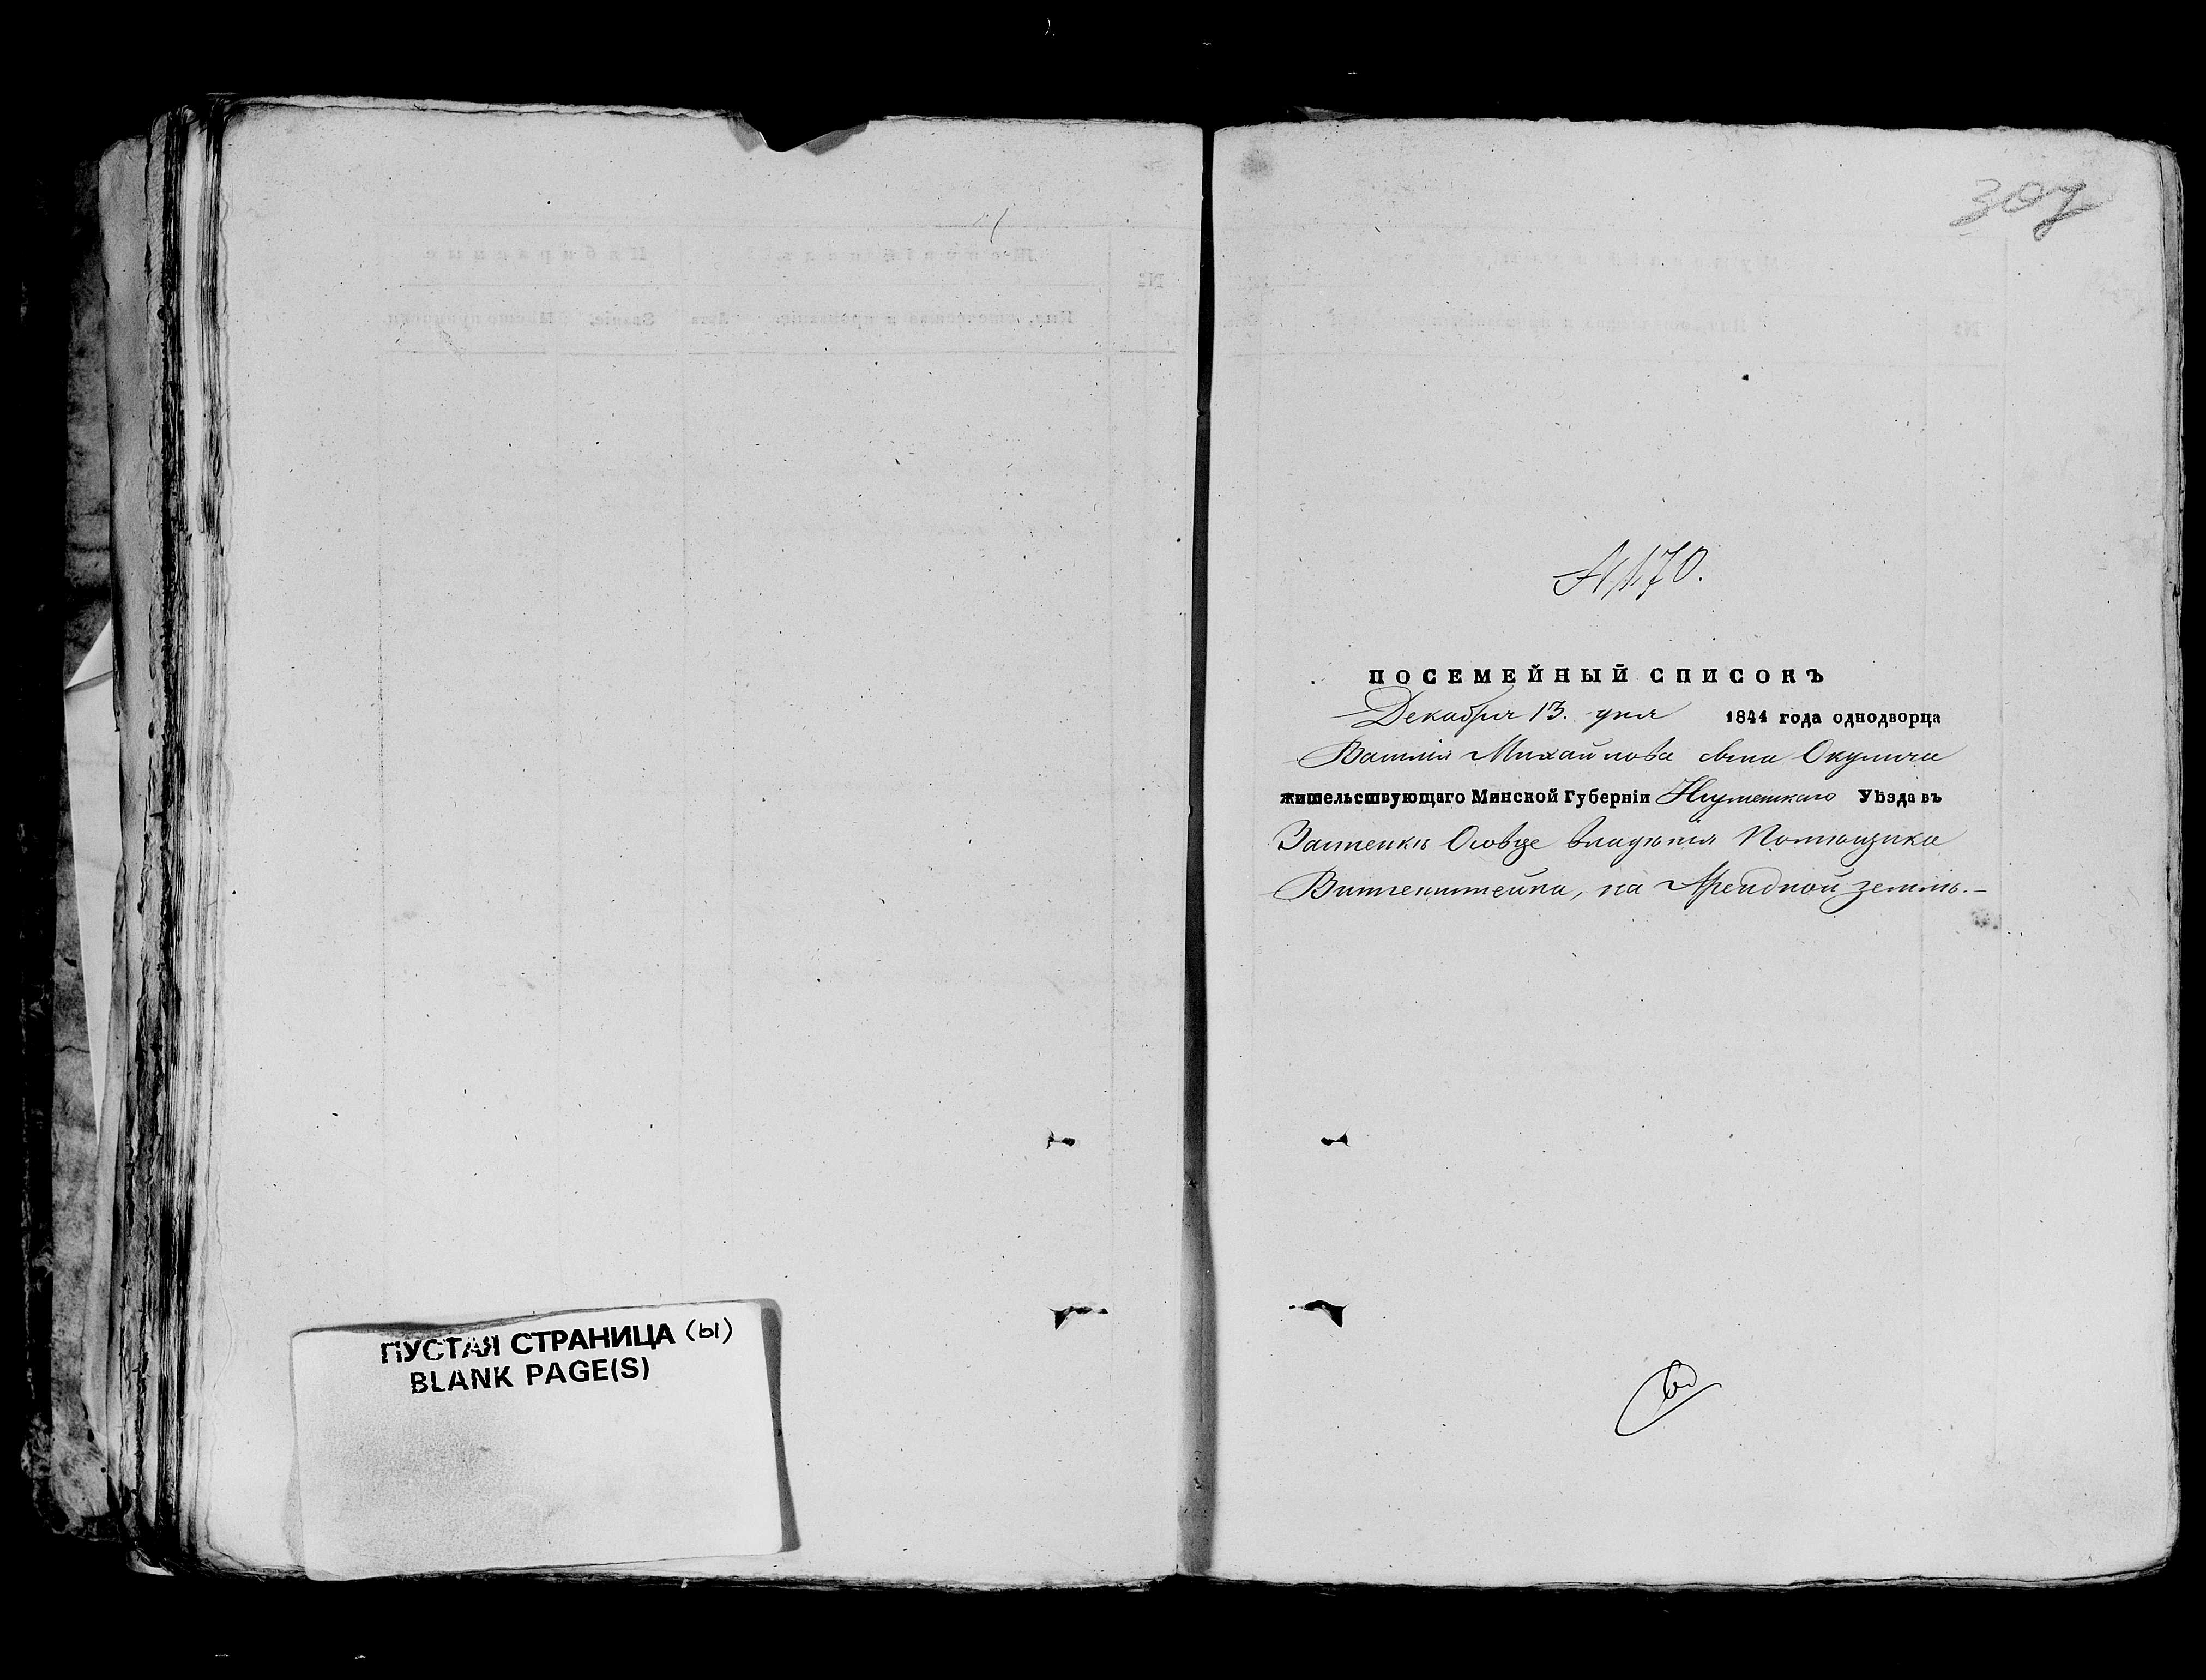 ПУСТАЯ СТРАНИЦА (ы)
BLANK PAGE(S)
307
№ 170.
ПОСЕМЕЙНЫЙ СПИСОКЪ
Декабря 13. дня 1844 года однодворца
Василія Михайлова сына Окулича
жительствующаго Минской Губерніи Уѣзда въ
Застенкѣ Осовце владѣнія Помѣщика
Витгенштейна, на Арендной землѣ.-